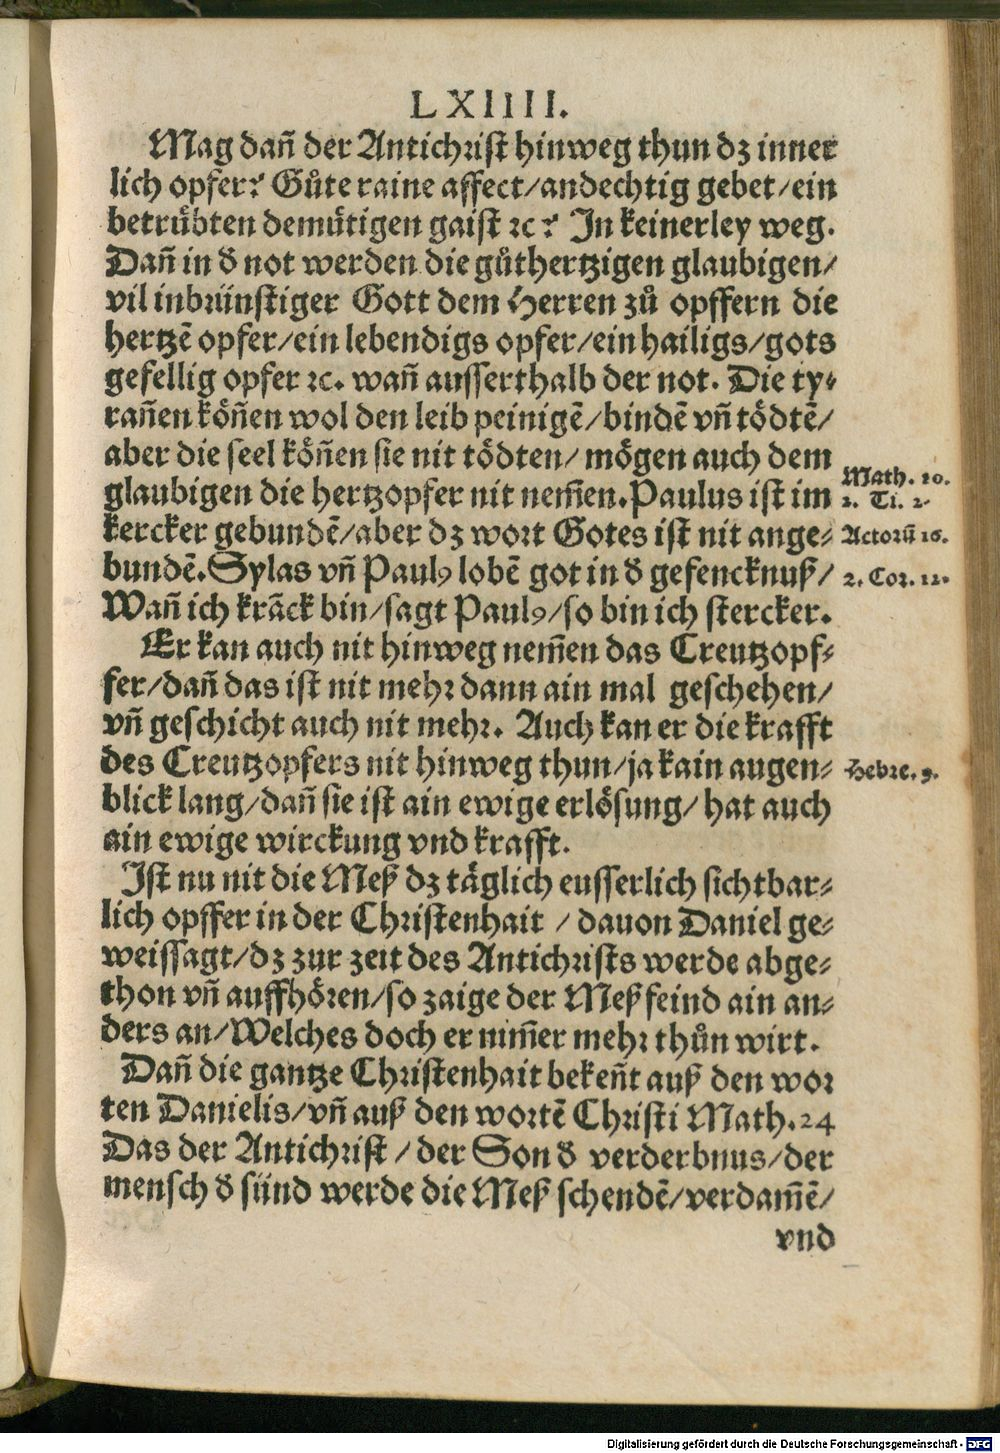 LXIIII.
Mag dañ der Antichrist hinweg thun dz inner
lich opfer? Gůte raine affect/andechtig gebet/ein
betrůbten demůtigen gaist ꝛc? In keinerley weg.
Dañ in d̕ not werden die gůthertzigen glaubigen/
vil inbrünstiger Gott dem Herren zů opffern die
hertzẽ opfer/ein lebendigs opfer/ein hailigs/gots
gefellig opfer ꝛc. wañ ausserthalb der not. Die ty⸗
rañen köñen wol den leib peinigẽ/bindẽ vñ tödtẽ/
aber die seel köñen sie nit tödten/ mögen auch dem
Math. 10.
glaubigen die hertzopfer nit nem̃en. Paulus ist im
2. Ti. 2.
kercker gebundẽ/aber dz wort Gotes ist nit ange⸗
Actorũ 16.
bundẽ. Sylas vñ Paulꝯ lobẽ got in d̕ gefencknuß/
2. Cor. 12.
Wañ ich krãck bin/sagt Paulꝯ/so bin ich stercker.
Er kan auch nit hinweg nem̃en das Creutzopf⸗
fer/dañ das ist nit mehr dann ain mal geschehen/
vñ geschicht auch nit mehr. Auch kan er die krafft
des Creutzopfers nit hinweg thun/ja kain augen⸗
Hebre. 9.
blick lang/dañ sie ist ain ewige erlösung/ hat auch
ain ewige wirckung vnd krafft.
Ist nu nit die Meß dz täglich eusserlich sichtbar⸗
lich opffer in der Christenhait / dauon Daniel ge⸗
weissagt/dz zur zeit des Antichrists werde abge⸗
thon vñ auffhören/so zaige der Meß feind ain an⸗
ders an/Welches doch er nim̃er mehr thůn wirt.
Dañ die gantze Christenhait bekeñt auß den wor
ten Danielis/vñ auß den wortẽ Christi Math. 24
Das der Antichrist / der Son d̕ verderbnus/der
mensch d̕ sünd werde die Meß schendẽ/verdam̃ẽ/
vnd
Digitalisierung gefördert durch die Deutsche Forschungsgemeinschaft - DFG